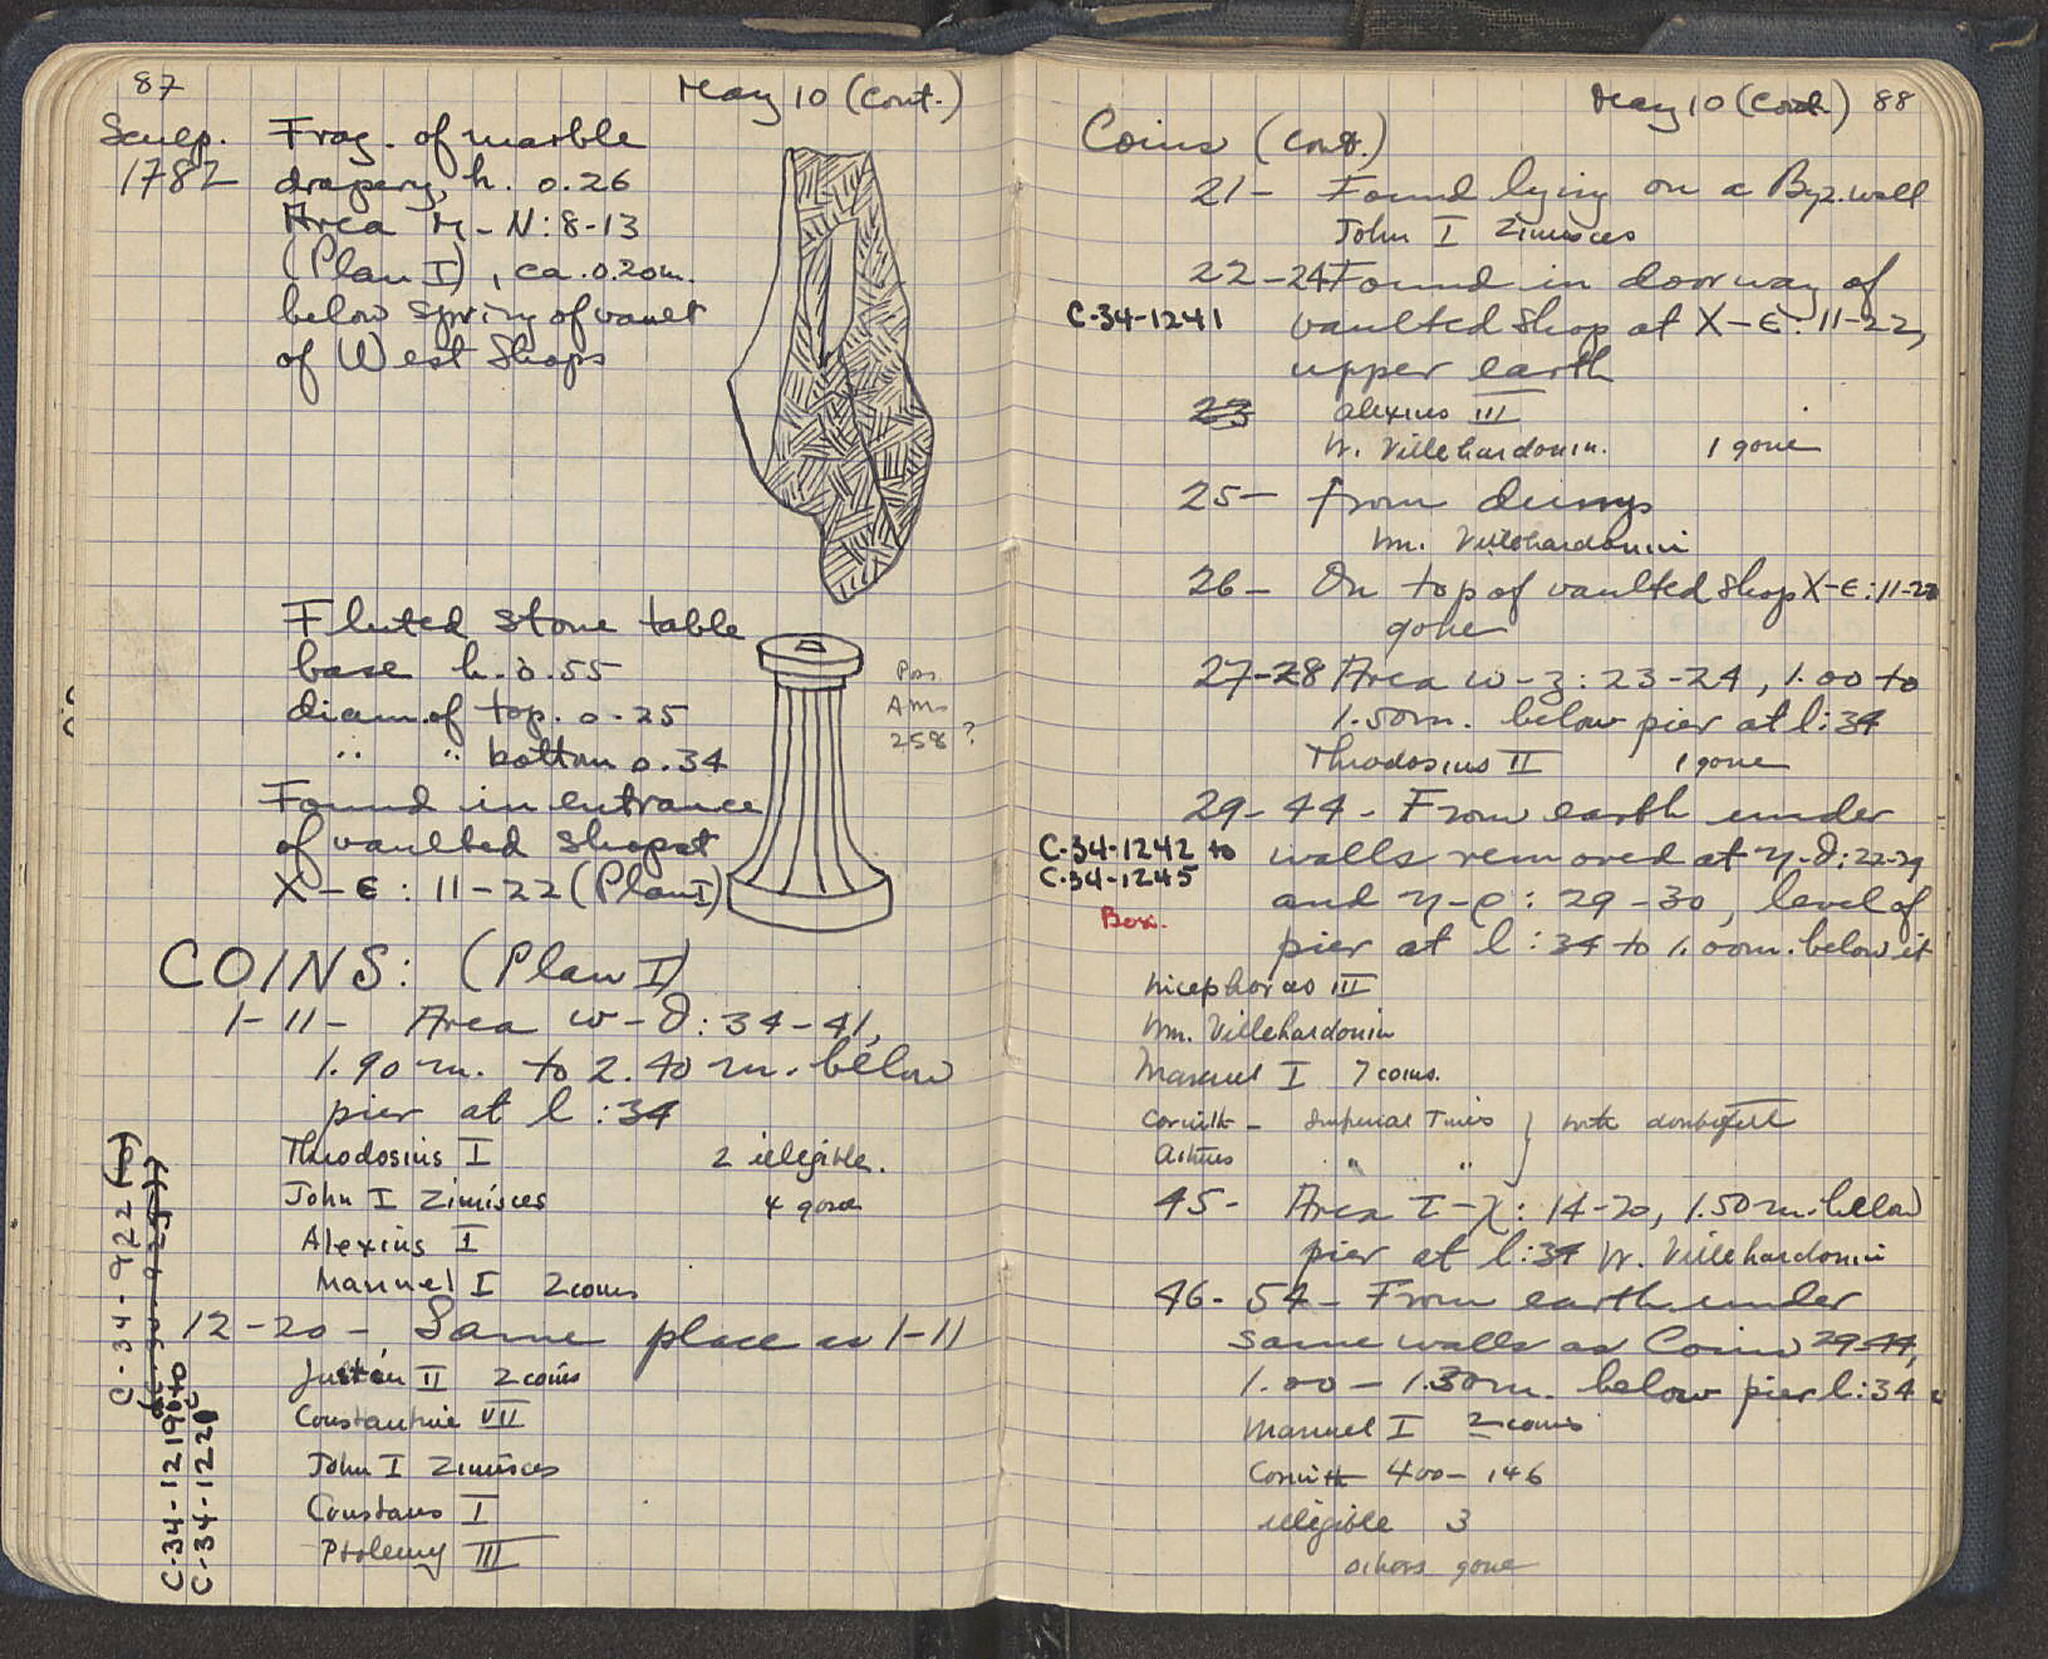 87
May 10 (Cont.)
Sculp.
1782
Frag. of marble
drapery, h. 0.26
Area M-N:8-13
(Plan I), ca. 0.20m.
below spring of vault
of West Shops
Fluted stone table
base h. 0.55
diam. of top. 0.25
" " bottom 0.34
Pos.
AM
258?
Found in entrance
of vaulted shop at
X-E: 11-22 (Plan I)
COINS: (Plan I)
1-11- Area w-∂:34-41,
1.90 m. to 2.40 m. below
pier at l:34
Theodosius I 2 illegible.
John I Zimisces 4 gone
Alexius I
Manuel I 2 coins
12-20- Same place as 1-11
Justin II 2 coins
Constantine VII
John I Zimisces
Constans I
Ptolemy III
C-34-922
C-34-1219 to
C-34-1221
May 10 (Cont.) 88
Coins (Cont.)
21- Found lying on a Byz. wall
John I Zimisces
22-24 Found in doorway of
C-34-1241
vaulted shop at X-E: 11-22,
upper earth
23 Alexius III
W. Villehardouin. 1 gone
25- from dumps
Wm. Villehardouin
26- On top of vaulted shop X-E:11-22
gone
27-28 Area w-z: 23-24, 1.00 to
1.50m. below pier at l:34
Theodosius II 1 gone
29-44- From earth under
C-34-1242 to
C-34-1245
Box.
walls removed at η-∂:22-29
and η-ρ: 29-30, level of
pier at l:34 to 1.00m. below it
Nicephorus III
Wm. Villehardouin
Manuel I 7 coins.
Corinth - Imperial Times } both doubtful
Athens " "
45- Area T-X: 14-20, 1.50 m. below
pier at l:34 W. Villehardouin
46-54- From earth under
same walls as Coins 29-44,
1.00-1.30m. below pier l:34
Manuel I 2 coins
Corinth 400-146
illegible 3
others gone